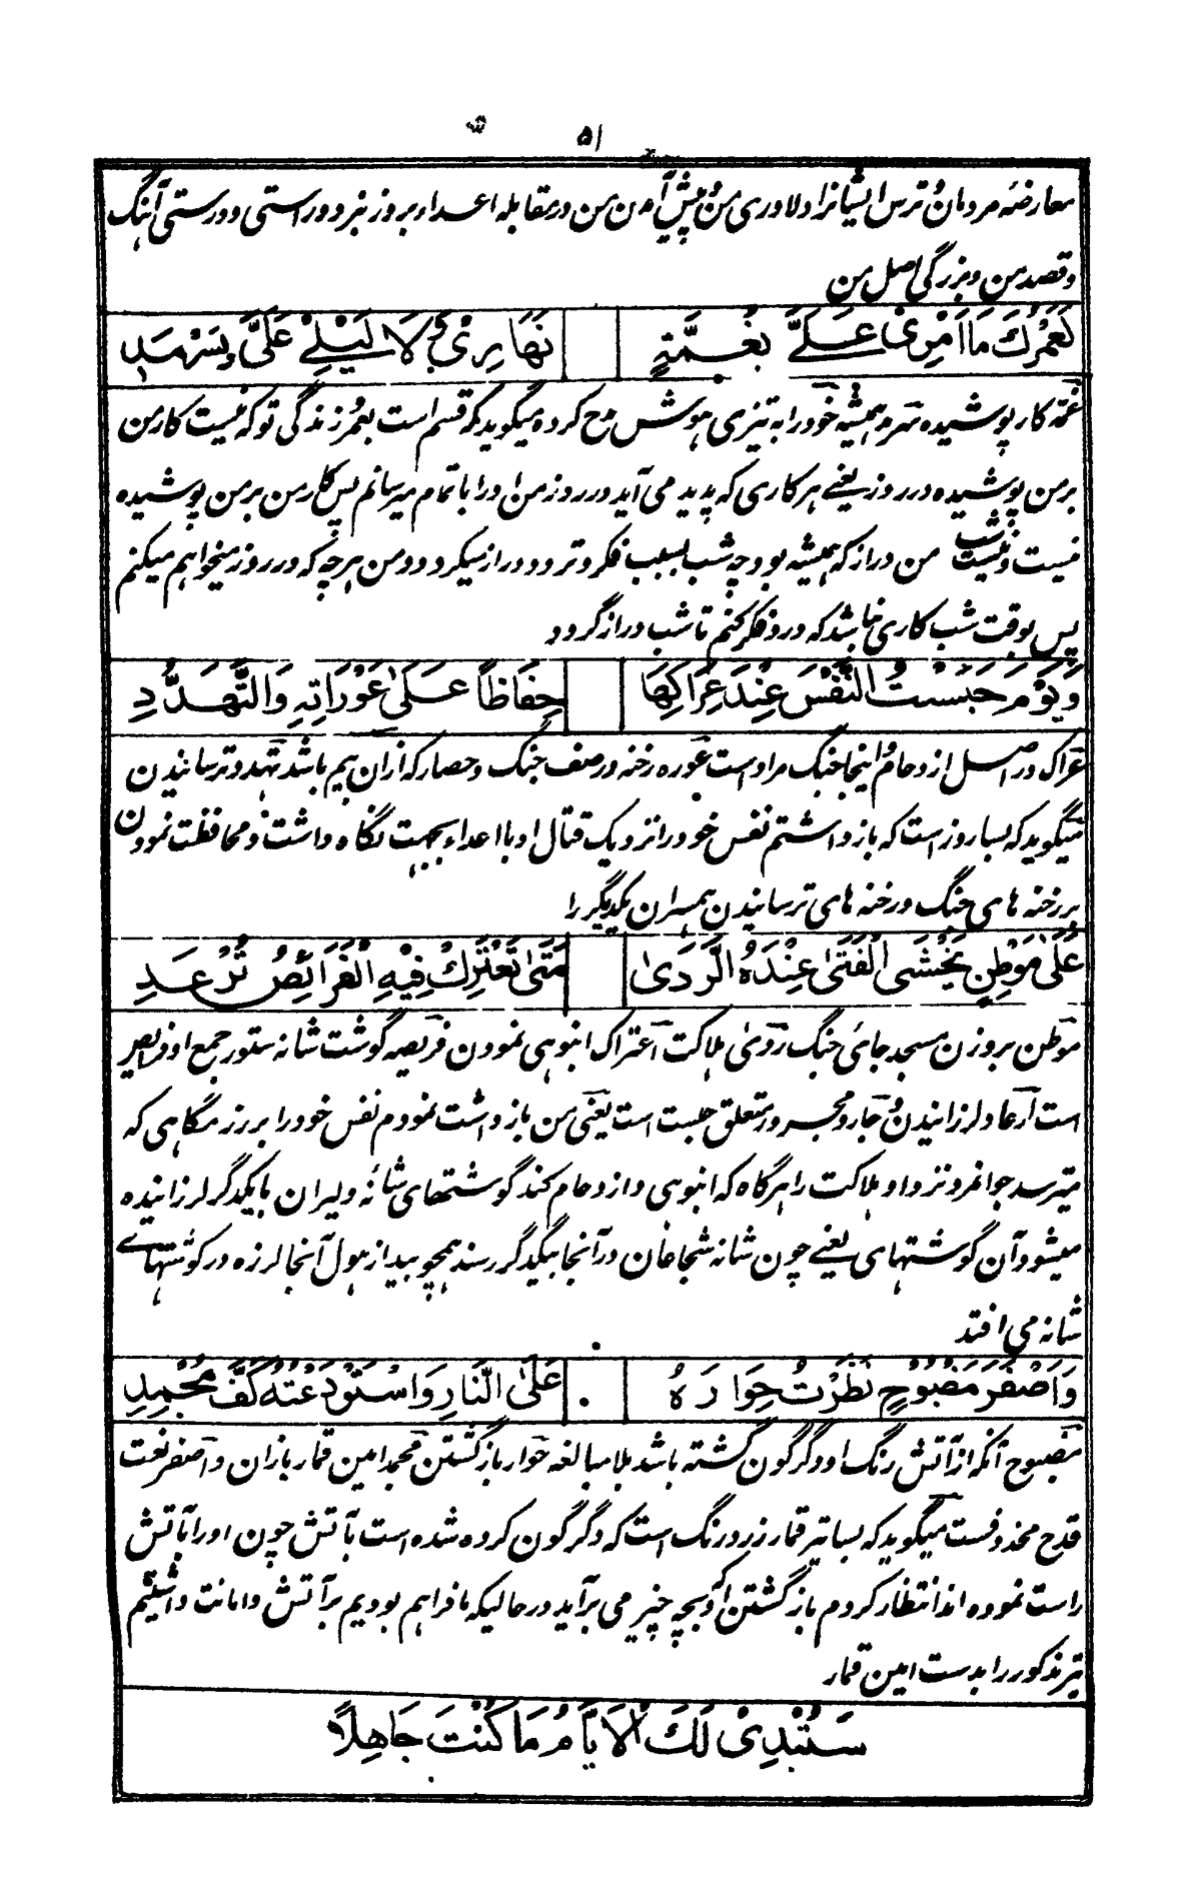 ۵۱
معارضهٔ مردمان و ترس ایشانرا و لاوری من و پیش آمدن من در مقابله اعداء بروز نبرد و راستی و درستی آهنگ
و قصد من و بزرگی اصل من
لَعَمْرُكَ مَا اَمْرِیْ عَلَیَّ بِغُمَّةٍ نَهَارِیْ وَلَا لَيْلِیْ عَلَیَّ بِسَرْمَدِ
غمّه کار پوشیده سرمد همیشه خود را به تیزی هوش مدح کرده میگوید که قسم است بعمر و زندگی تو که نیست کار من
بر من پوشیده در روز یعنے هر کاری که پدید می آید در روز من او را باتمام میرسانم پس کار من بر من پوشیده
نیست و نیست شب من دراز که همیشه بود چه شب بسبب فکر و تردد دراز میگردد و من هرچه که در روز میخواهم میکنم
پس بوقت شب کاری نباشد که درو فکر کنم تا شب دراز گردد
وَيَوْمَ حَبَسْتُ النَّفْسَ عِنْدَ عِرَاكِهَا حِفَاظًا عَلَىٰ عَوْرَاتِهِ وَالتَّهَدُّدِ
عراک در اصل ازدحام و اینجا جنگ مراد است عوره رخنه در صف جنگ و حصار که ازان بیم باشد تهدد ترسانیدن
میگوید که بسا روز است که بازداشتم نفس خود را نزدیک قتال او با اعداء بجهت نگاه داشت و محافظت نمودن
بر رخنه های جنگ و رخنه های ترسانیدن همسران یکدیگر را
عَلَىٰ مَوْطِنٍ يَخْشَى الْفَتَىٰ عِنْدَهُ الرَّدَىٰ مَتَىٰ تَعْتَرِكْ فِيْهِ الْفَرَائِصُ تُرْعَدِ
موطن بروزن مسجد جائ جنگ ردیٰ هلاکت اعتراک انبوهی نمودن فریصه گوشت شانه ستور جمع او فرائص
است ارعاد لرزانیدن و جار و مجرور متعلق حبست است یعنی من بازداشت نمودم نفس خود را بر رزمگاهی که
میترسد جوانمرد نزد او هلاکت را هرگاه که انبوهی و ازدحام کند گوشتهای شانه دلیران با یکدگر لرزانیده
میشود آن گوشتهای یعنے چون شانه شجاعان در آنجا بیکدگر رسند همچو بید از هول آنجا لرزه در گوشتهاے
شانه می افتد
وَاَصْفَرَ مَضْبُوْحٍ نَظَرْتُ حِوَارَهُ عَلَى النَّارِ وَاسْتَوْدَعْتُهُ كَفَّ مُجْمِدِ
مضبوح آنکه از آتش رنگ او دگرگون گشته باشد بلا مبالغه حوار بازگشتن مجمد امین قمار بازان و اصفر نعت
قدح محذوفست میگوید که بسا تیر قمار زرد رنگ است که دگرگون کرده شده است بآتش چون او را بآتش
راست نموده اند انتظار کردم بازگشتن او که بچه چیز می برآید در حالیکه ما فراهم بودیم بر آتش و امانت داشتیم
تیر مذکور را بدست امین قمار
سَتُبْدِیْ لَكَ الْاَيَّامُ مَا كُنْتَ جَاهِلًا